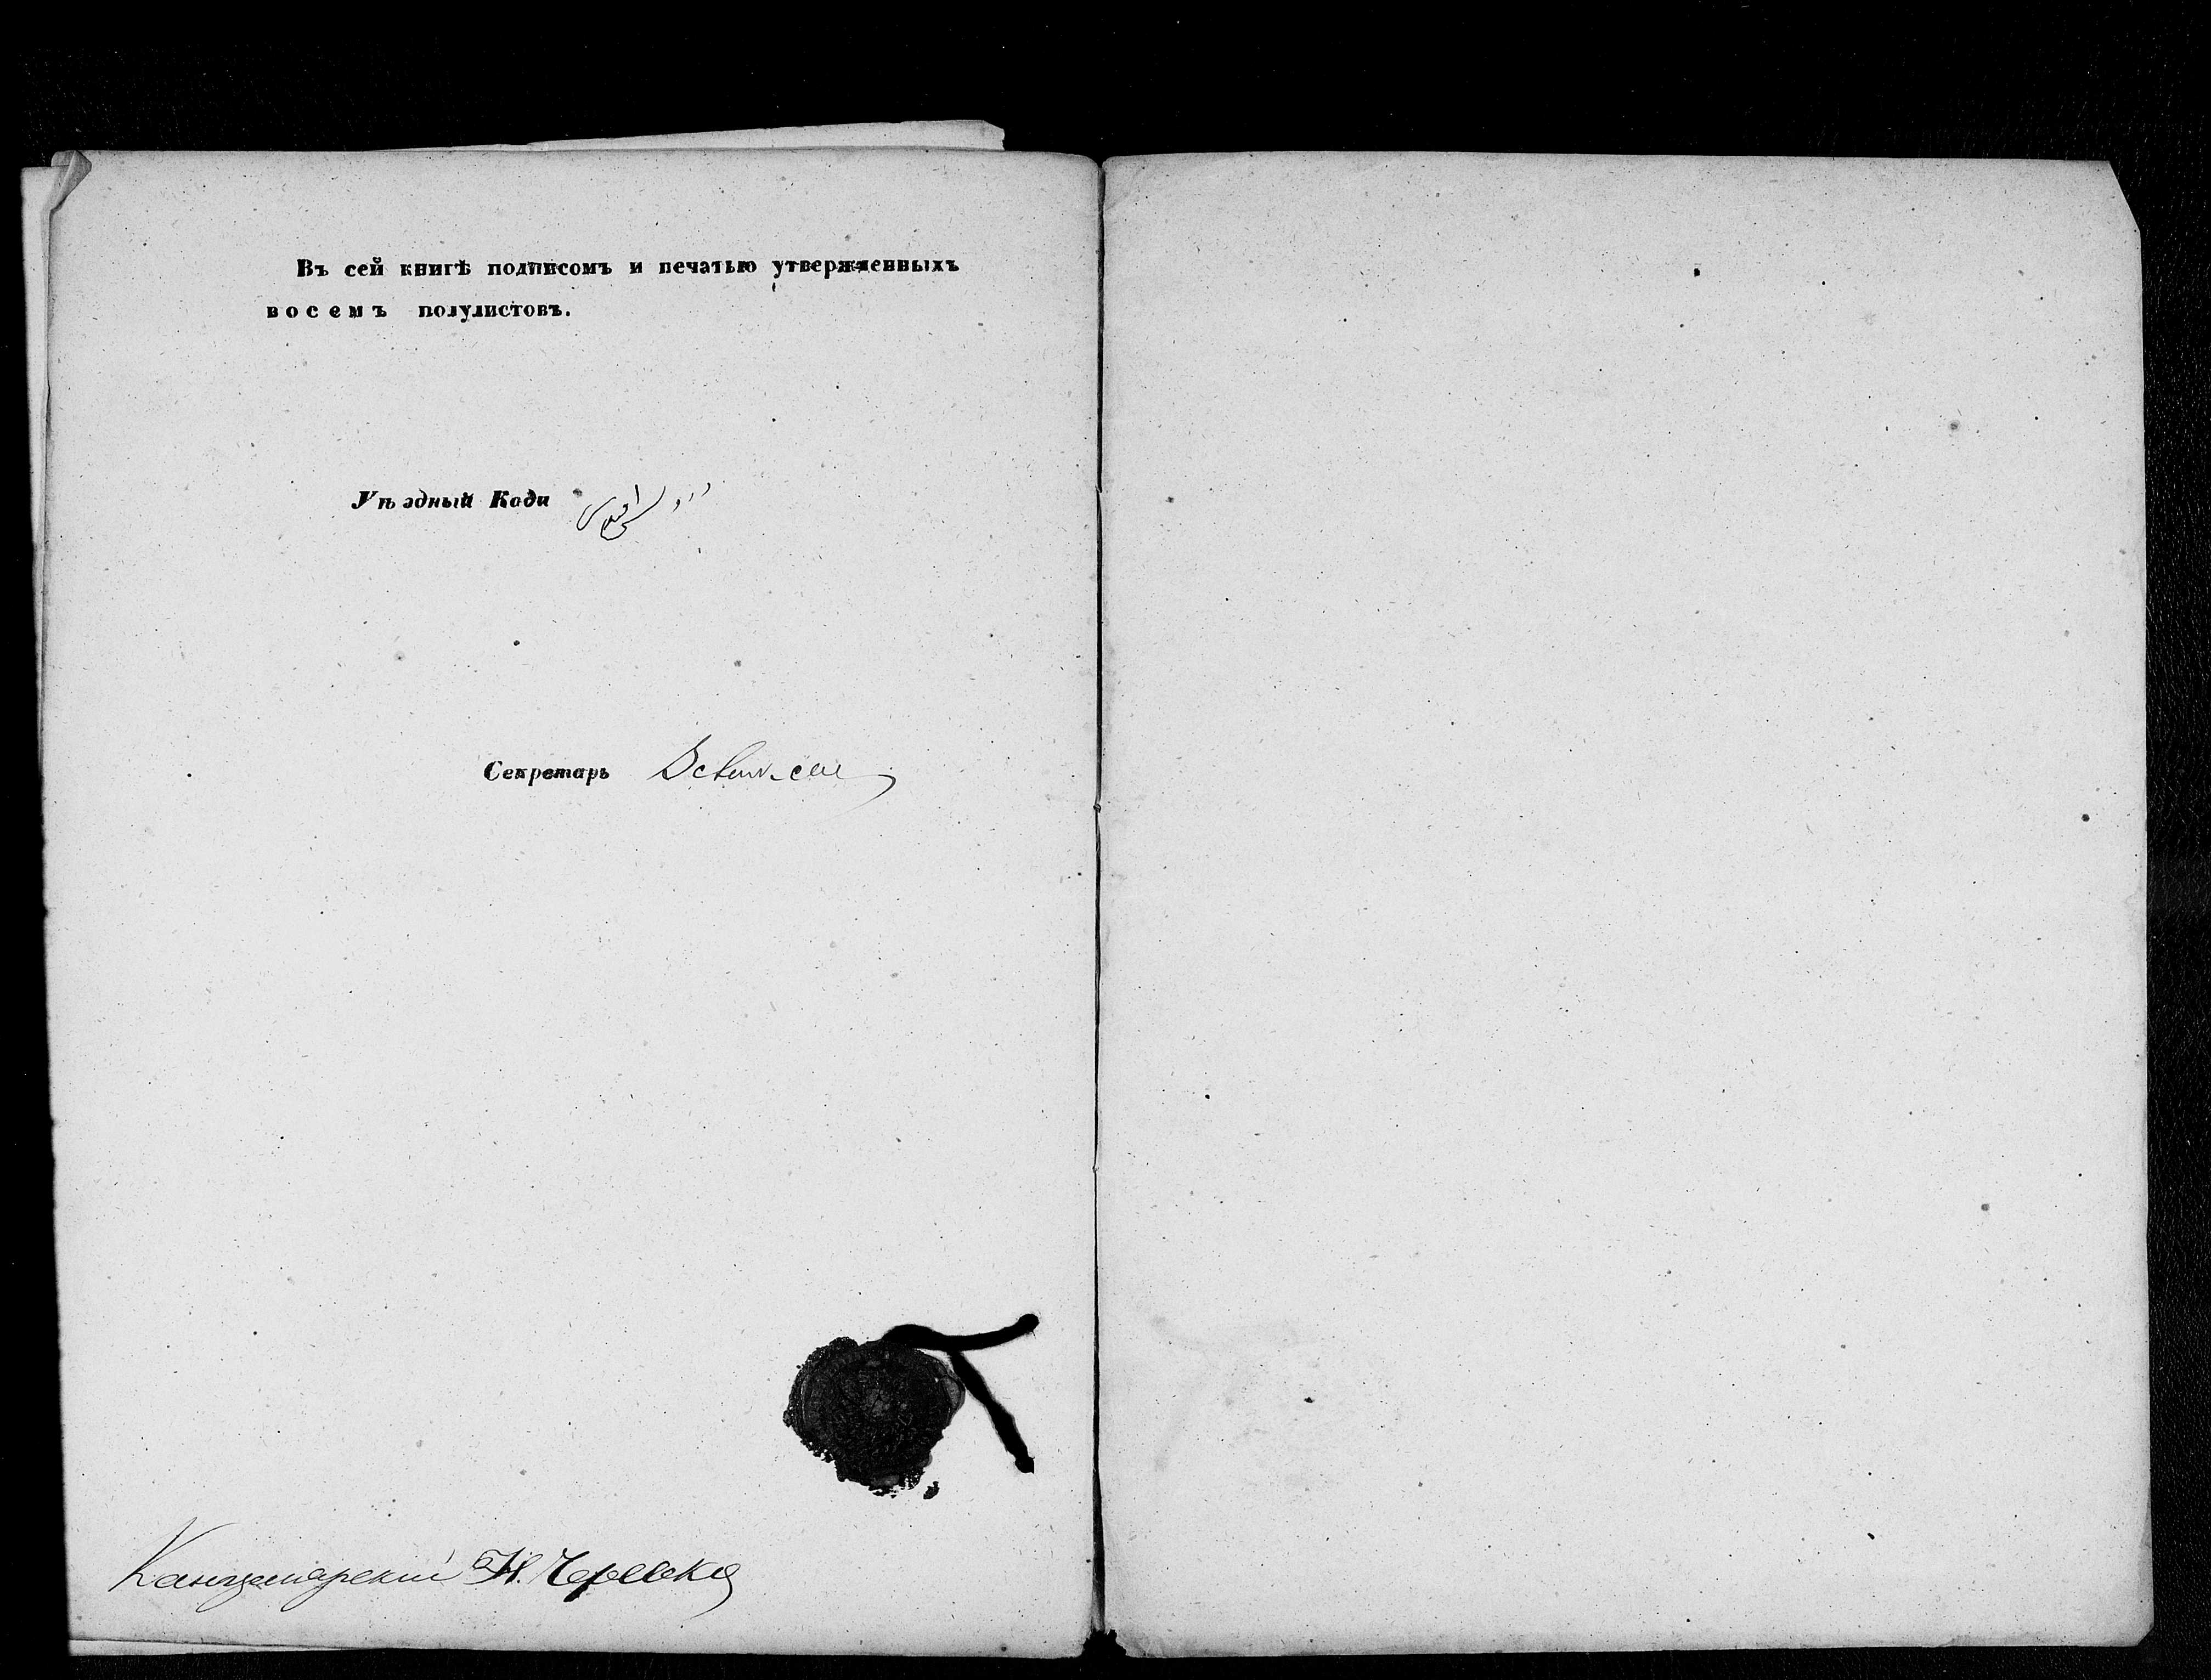 Въ сей книгѣ подписомъ и печатью утвержденныхъ
восемъ полулистовъ.
Уѣздный Кади
Секретарь
Канцелярскій Н.